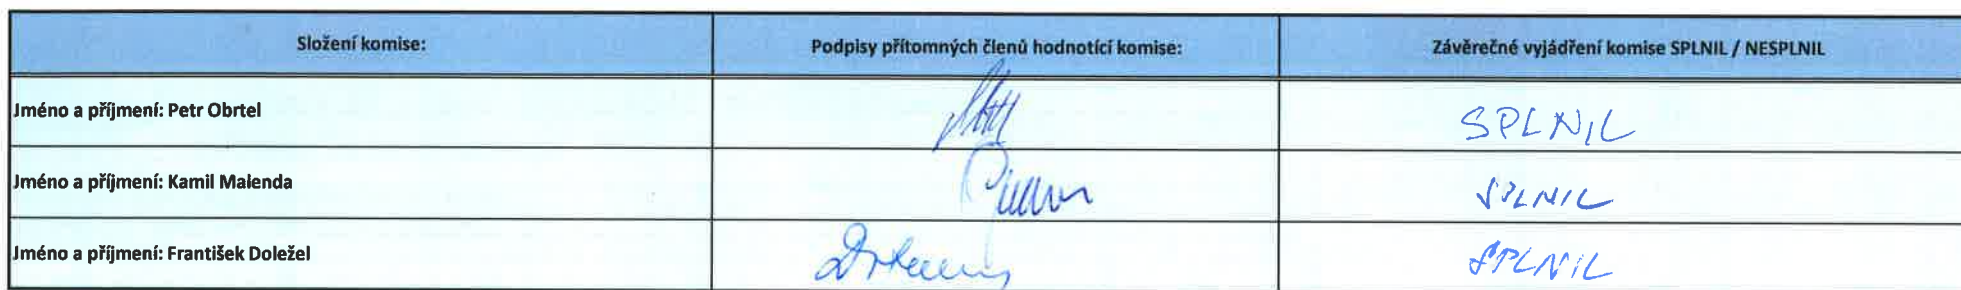 Složení komise: Podpisy přítomných členů hodnotící komise: Závěrečné vyjádření komise SPLNIL / NESPLNIL
Jméno a příjmení: Petr Obrtel SPLNIL
Jméno a příjmení: Kamil Malenda SPLNIL
Jméno a příjmení: František Doležel SPLNIL